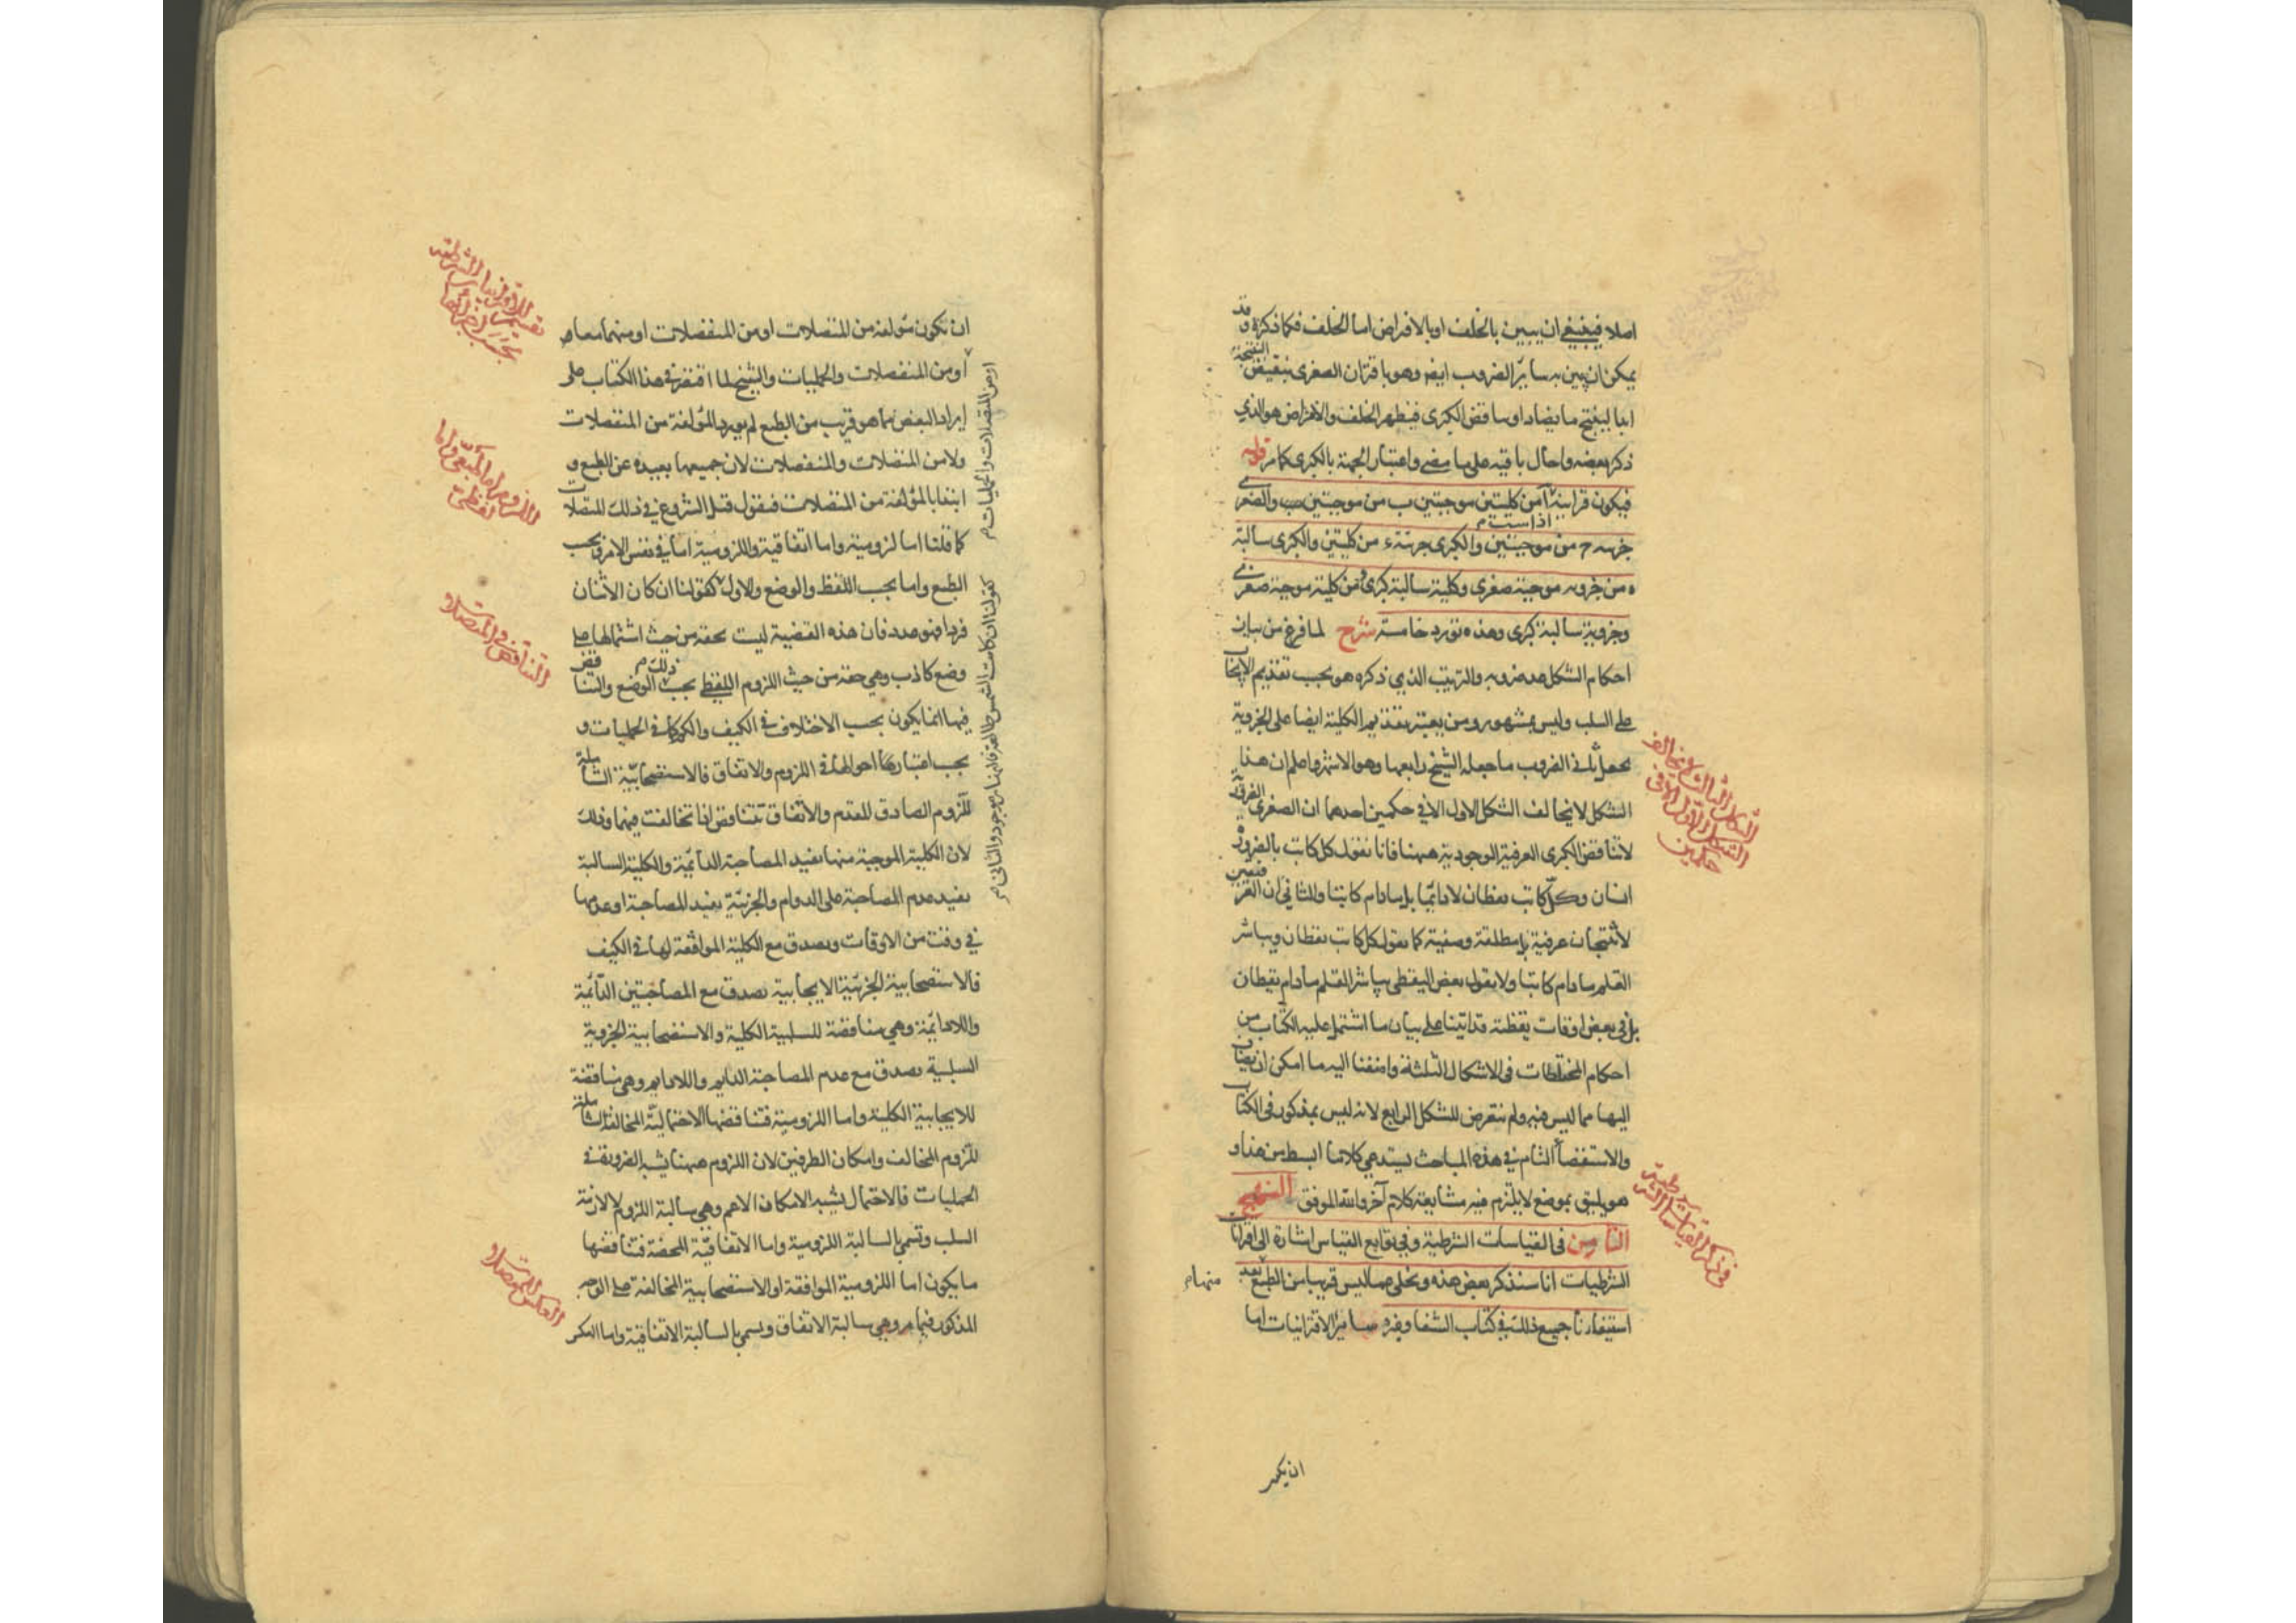 اصلا فينبغي ان يبين بالخلف او بالافتراض اما الخلف فكما ذكره وقد
يمكن ان يبين به سائر الضروب ايضه وهو باقتران الصغرى بنقيض النتيجة
ابدا لينتج ما يضاد او يناقض الكبرى فيظهر الخلف والافتراض هو الذي
ذكر بعضه واحال باقيه على ما مضى واعتبار الجهة بالكبرى كما مر قوله
فيكون قرائنه آ من كليتين موجبتين ب من موجبتين والصغرى
جزئية ج من موجبتين والكبرى جزئية ء من كليتين والكبرى سالبة
ه من جزوية موجبة صغرى وكلية سالبة كبرى و من كلية موجبة صغرى
وجزوية سالبة كبرى وهذه تورد خامسة شرح لما فرغ من بيان
احكام الشكل عد ضروبه والترتيب الذي ذكره هو بحسب تقديم الايجاب
على السلب وليس بمشهور ومن يعتبر تقديم الكلية ايضا على الجزوية
يجعل ثاني الضروب ما جعله الشيخ رابعها وهو الاشهر واعلم ان هذا
الشكل لا يخالف الشكل الاول الا في حكمين احدهما ان الصغرى الضرورية
لا تناقض الكبرى العرفية الوجودية ههنا فانا نقول كل كاتب بالضرورة
انسان وكل كاتب يقظان لا دايما بل ما دام كاتبا والثاني ان العرفيتين
لا تنتجان عرفية بل مطلقة وصفية كما نقول كل كاتب يقظان ويباشر
القلم ما دام كاتبا ولا نقول بعض اليقظى يباشر القلم ما دام يقظان
بل في بعض اوقات يقظته قد اتينا على بيان ما اشتمل عليه الكتاب من
احكام المختلطات في الاشكال الثلثة واضفنا اليه ما امكن ان يضاف
اليها مما ليس فيه ولم نتعرض للشكل الرابع لانه ليس بمذكور في الكتاب
والاستقصاء التام في هذه المباحث يستدعي كلاما ابسط من هذا و
هو يليق بموضع لا يلتزم فيه متابعة كلام آخر والله الموفق النهج
الثامن في القياسات الشرطية وفي توابع القياس اشارة الى اقترانات
الشرطيات انا سنذكر بعض هذه ونخلي عما ليس قريبا من الطبع منها بعد
استيفائنا جميع ذلك في كتاب الشفا وغيره سائر الاقترانيات اما
الشكل الثالث لا يخالف
الشكل الاول الا في
حكمين
في ذكر القياسات الشرطية
ان يكون
ان تكون مؤلفة من المتصلات او من المنفصلات او منهما معا
او من المنفصلات والحمليات والشيخ لما اقتصر في هذا الكتاب على
ايراد البعض مما هو قريب من الطبع لم يورد المؤلفة من المنفصلات
ولا من المتصلات والمنفصلات لان جميعها بعيدة عن الطبع و
ابتدا بالمؤلفة من المتصلات فنقول قبل الشروع في ذلك المتصلات
كما قلنا اما لزومية واما اتفاقية واللزومية اما في نفس الامر وبحسب
الطبع واما بحسب اللفظ والوضع والاول كقولنا ان كان الاثنان
فردا فهو عدد فان هذه القضية ليست بحقه من حيث اشتمالها على
وضع كاذب وهي حقه من حيث اللزوم اللفظي بحسب ذلك الوضع والتناقض
فيها انما يكون بحسب الاختلاف في الكيف والكم كما في الحمليات و
يجب اعتبار احوالها في اللزوم والاتفاق فالاستصحابية الشاملة
للزوم الصادق المقدم والاتفاق تتناقض اذا تخالفت فيهما وذلك
لان الكلية الموجبة منها تفيد المصاحبة الدائمة والكلية السالبة
تفيد عدم المصاحبة على الدوام والجزئية تفيد المصاحبة او عدمها
في وقت من الاوقات ويصدق مع الكلية الموافقة لها في الكيف
فالاستصحابية الجزئية الايجابية تصدق مع المصاحبتين الدائمة
واللادائمة وهي مناقضة للسلبية الكلية والاستصحابية الجزوية
السلبية تصدق مع عدم المصاحبة الدايم واللادايم وهي مناقضة
للايجابية الكلية واما اللزومية فتناقضها الاحتمالية المخالفة الشاملة
للزوم المخالف وامكان الطرفين لان اللزوم ههنا يشبه الضرورة في
الحمليات فالاحتمال يشبه الامكان الاعم وهي سالبة اللزوم لا لازمة
السلب وتسمى بالسالبة اللزومية واما الاتفاقية المحضة فتناقضها
ما يكون اما اللزومية الموافقة او الاستصحابية المخالفة على الوجه
المذكور فيما مر وهي سالبة الاتفاق ويسمى بالسالبة الاتفاقية واما العكس
او من المتصلات والحمليات
كقولنا ان كانت الشمس طالعة فالنهار موجود والثاني
التناقض في المتصلات
العكس في المتصلات